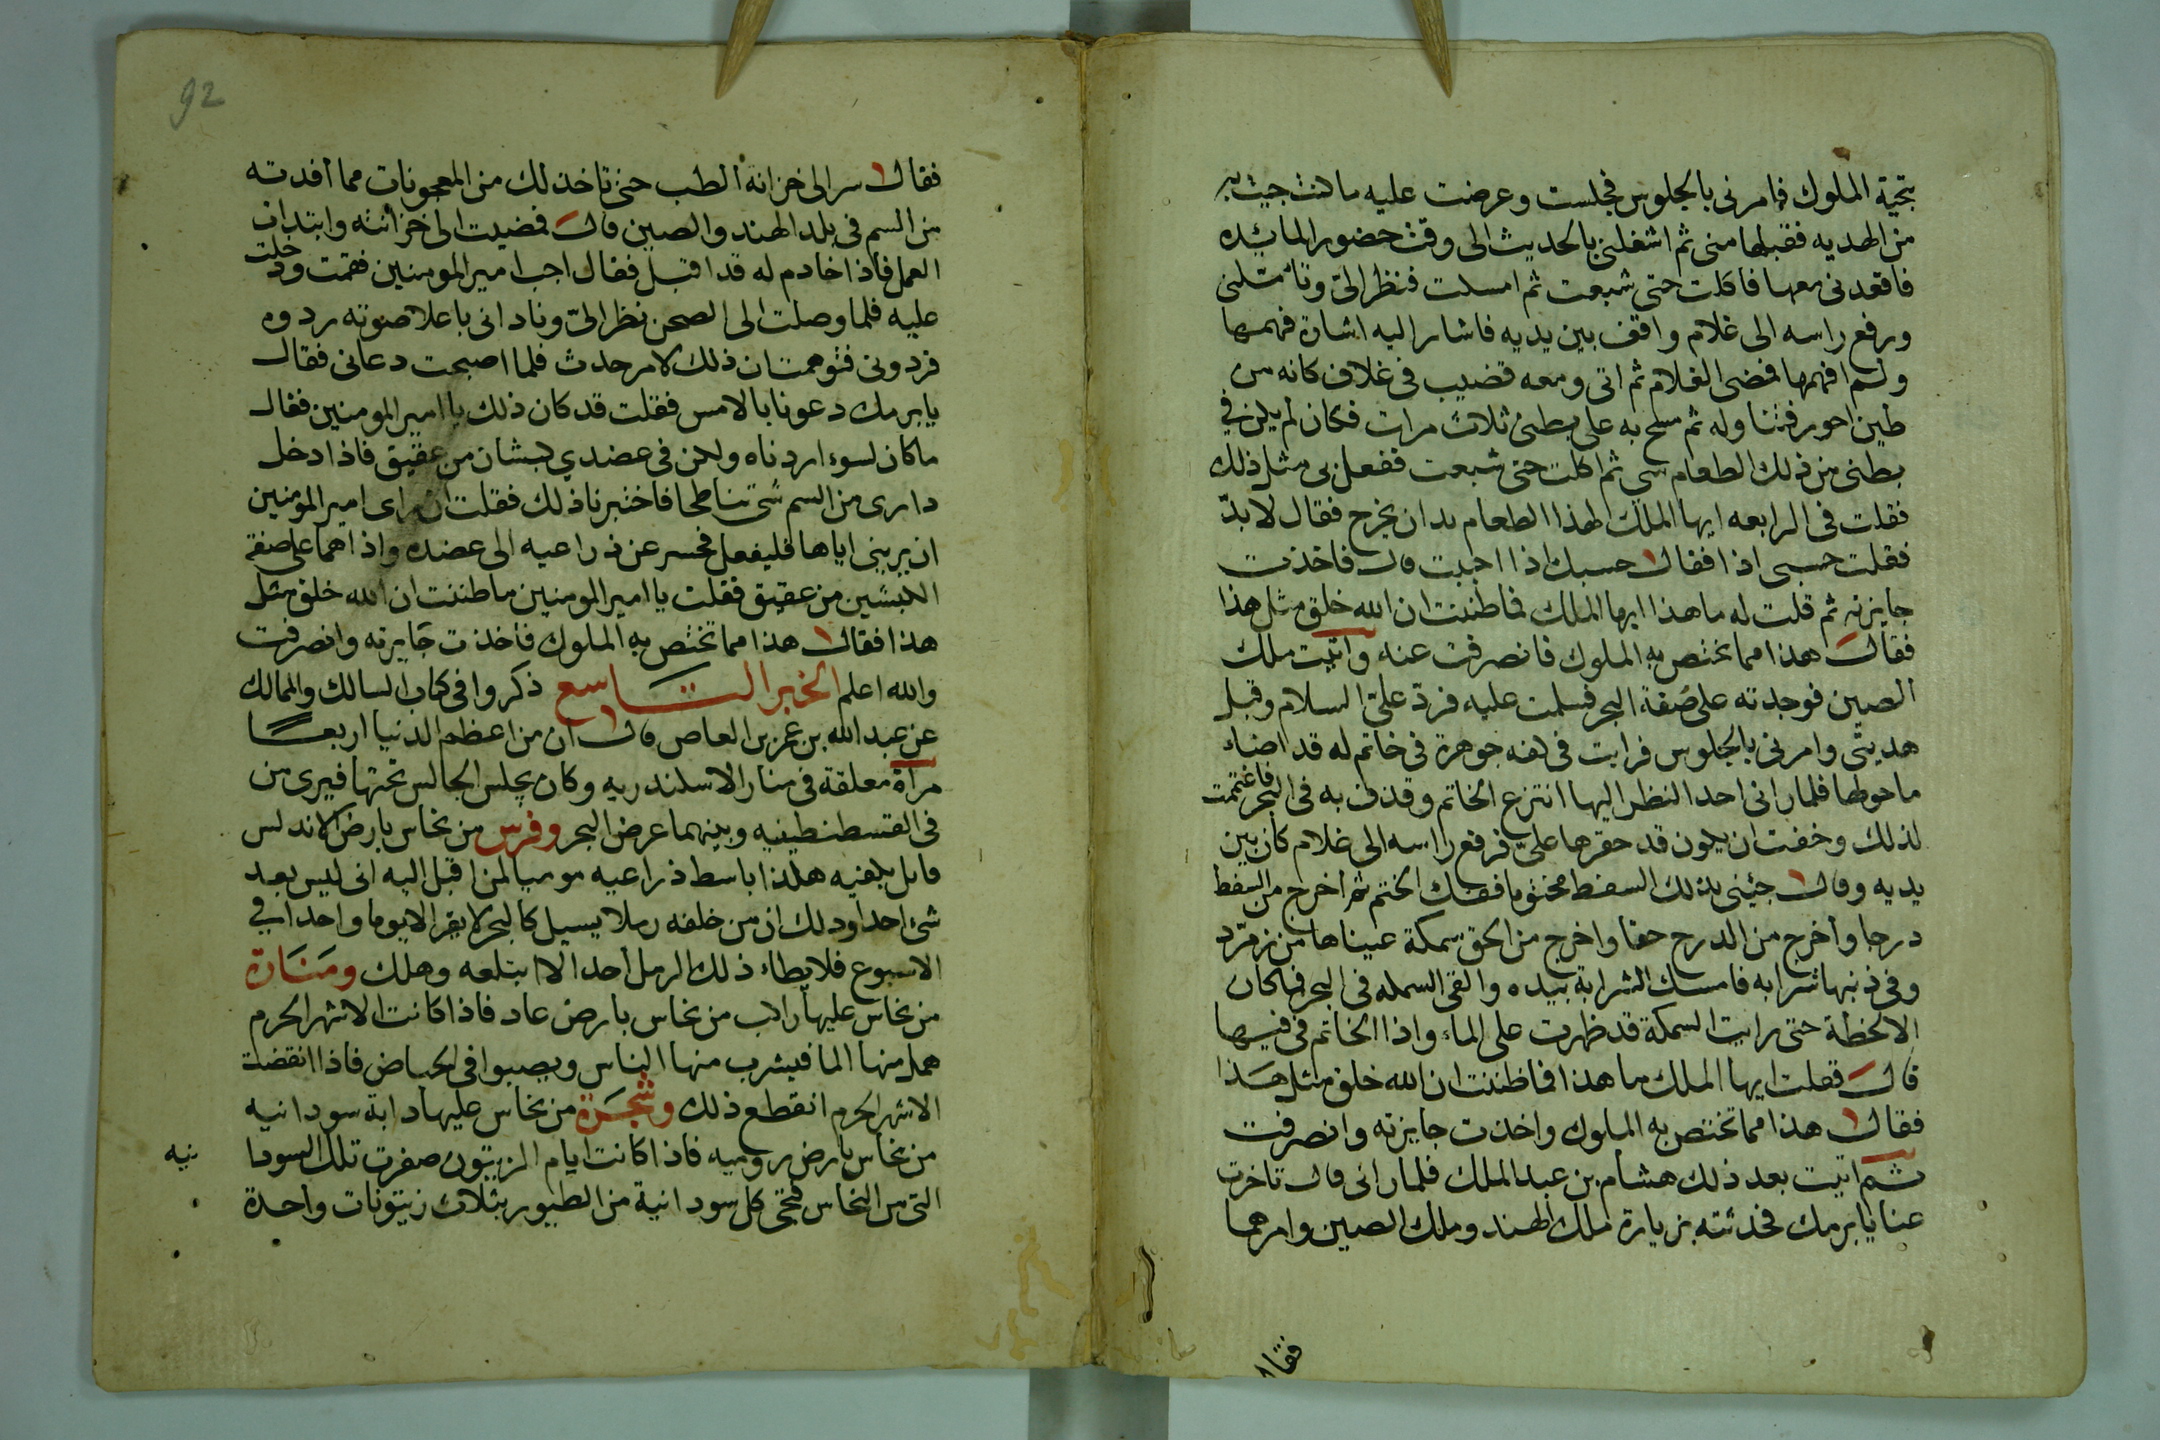 بتحية الملوك فامرنى بالجلوس فجلست وعرضت عليه ما كنت جيت به
من الهديه فقبلها منى ثم اشغلنى بالحديث الى وقت حضور المائده
فاقعدنى معها فاكلت حتى شبعت ثم امسكت فنظر الىّ وتأمّلنى
ورفع راسه الى غلام واقف بين يديه فاشار اليه اشارة فهمها
ولم افهمها فمضى الغلام ثم اتى ومعه قضيب فى غلاف كانه من
طين احور فتناوله ثم مسح به على بطنى ثلاث مرات فكان لم يكن فى
بطنى من ذلك الطعام شى ثم اكلت حتى شبعت ففعل بى مثل ذلك
فقلت فى الرابعه ايها الملك لهذا الطعام بد ان يخرج فقال لا بدّ
فقلت حسبى اذا فقال حسبك اذا احببت قال فاخذت
جايزته ثم قلت له ما هذا ايها الملك فما ظننت ان الله خلق مثل هذا
فقال هذا مما تختص به الملوك فانصرفت عنه واتيت ملك
الصين فوجدته على ضفة البحر فسلمت عليه فردّ علىّ السلام وقبل
هديتى وامرنى بالجلوس فرايت فى كفه جوهرة فى خاتم له قد اضاء
ما حولها فلما رانى احد النظر اليها انتزع الخاتم وقذف به فى البحر فاغتممت
لذلك وخفت ان يكون قد حقرها علىّ فرفع راسه الى غلام كان بين
يديه وقال جئنى بذلك السفط مختوما ففك الختم ثم اخرج من السفط
درجا واخرج من الدرج حقا واخرج من الحق سمكة عيناها من زمرّد
وفى ذنبها شرابه فامسك الشرابة بيده والقى السمكه فى البحر فما كان
الا لحظة حتى رايت السمكة قد ظهرت على الماء واذا الخاتم فى فيها
قال فقلت ايها الملك ما هذا فما ظننت ان الله خلق مثل هذا
فقال هذا مما تختص به الملوك واخذت جايزته وانصرفت
ثم اتيت بعد ذلك هشام بن عبد الملك فلما رانى قال تاخرت
عنا يا برمك فحدثته بزيارة ملك الهند وملك الصين وامرهما
فقال
92
فقال سر الى خزانة الطب حتى تاخذ لك من المعجونات مما افدته
من السم فى بلد الهند والصين قال فمضيت الى خزائنه وابتدات
العمل فاذا خادم له قد اقبل فقال اجب امير المومنين فقمت ودخلت
عليه فلما وصلت الى الصحن نظر الىّ ونادانى باعلا صوته ردوه
فردونى فتوهمت ان ذلك لامر حدث فلما اصبحت دعانى فقال
يا برمك دعونا بالامس فقلت قد كان ذلك يا امير المومنين فقال
ما كان لسوء اردناه ولكن فى عضدي كبشان من عقيق فاذا دخل
دارى من السم شى تناطحا فاختبرنا ذلك فقلت ان راى امير المومنين
ان يرينى اياها فليفعل فحسر عن ذراعيه الى عضده واذا هما على صفة
الكبشين من عقيق فقلت يا امير المومنين ما ظننت ان الله خلق مثل
هذا فقال هذا مما تختص به الملوك فاخذت جايزته وانصرفت
والله اعلم الخبر التاسع ذكروا فى كتاب المسالك والممالك
عن عبد الله بن عمرو بن العاص قال ان من اعظم الدنيا اربعًا
مرآة معلقة فى منار الاسكندريه وكان يجلس الجالس تحتها فيرى من
فى القسطنطينيه وبينهما عرض البحر وفرس من نحاس بارض الاندلس
قايل بكفيه هكذا باسط ذراعيه موميا لمن اقبل اليه انى ليس بعد
شئ احدا وذلك ان من خلفه رملا يسيل كالبحر لا يقر الا يوما واحدا فى
الاسبوع فلا يطاء ذلك الرمل أحد الا ابتلعه وهلك ومنارة
من نحاس عليها راكب من نحاس بارض عاد فاذا كانت الاشهر الحرم
همل منها الما فيشرب منها الناس ويصبوا فى الحياض فاذا انقضت
الاشهر الحرم انقطع ذلك وشجرة من نحاس عليها دابة سودانيه
من نحاس بارض روميه فاذا كانت ايام الزيتون صفرت تلك السودا
نيه
التى من النحاس فتجى كل سودانية من الطيور بثلاث زيتونات واحدة